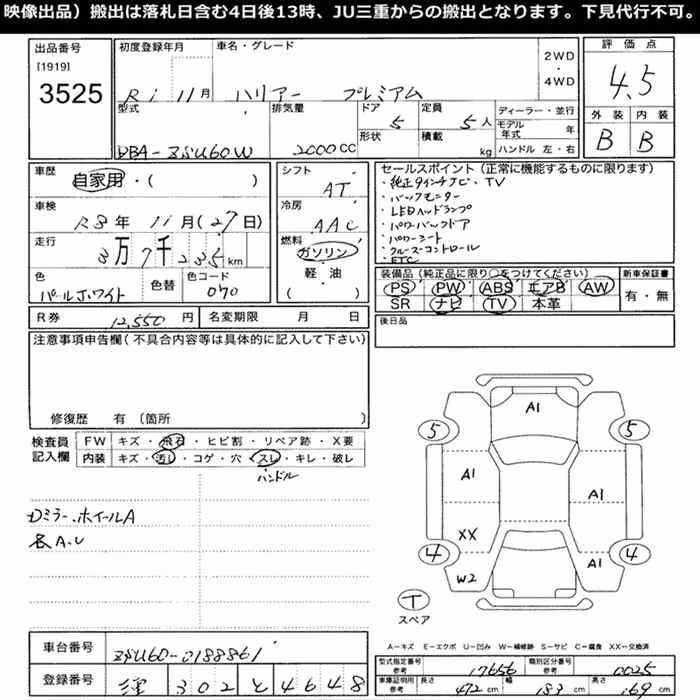 映像出品）搬出は落札日含む4日後13時、JU三重からの搬出となります。下見代行不可。
出品番号
[1919]
3525
初度登録年月
R1 11月
車名・グレード
ハリアー プレミアム
2WD
・
4WD
評価点
4.5
外装 内装
B B
型式
DBA-ZSU60W
排気量
2000CC
ドア 5
形状
定員 5人
積載 kg
ディーラー・並行
モデル年式 年
ハンドル 左・右
車歴
自家用・( )
車検
R8年 11月(27日)
走行
3万7千235km
色
パールホワイト
色替
色コード
070
シフト
AT
冷房
AAC
燃料
ガソリン
軽・油
( )
セールスポイント（正常に機能するものに限ります）
・純正9インチナビ・TV
・バックモニター
・LEDヘッドランプ
・パワーバックドア
・パワーシート
・クルーズコントロール
・ETC
装備品（純正品に限り○をつけてください）
PS PW ABS エアB AW
SR ナビ TV 本革
新車保証書
有・無
R券 12,550円
名変期限 月 日
後日品
注意事項申告欄（不具合内容等は具体的に記入して下さい）
修復歴 有（箇所 ）
検査員記入欄
FW キズ・飛石・ヒビ割・リペア跡・X要
内装 キズ・汚れ・コゲ・穴・スレ・キレ・破レ
ハンドル
Dミラー、ホイールA
各A.U
A1
5 5
A1 A1
XX
4 4
W2 A1
T
スペア
A－キズ E－エクボ U－凹み W－補修跡 S－サビ C－腐食 XX－交換済
車台番号 ZSU60-0188861
登録番号 302と4648
型式指定番号参考 17656
類別区分番号参考 0025
車庫証明用参考 長さ 472cm 幅 183cm 高さ 169cm